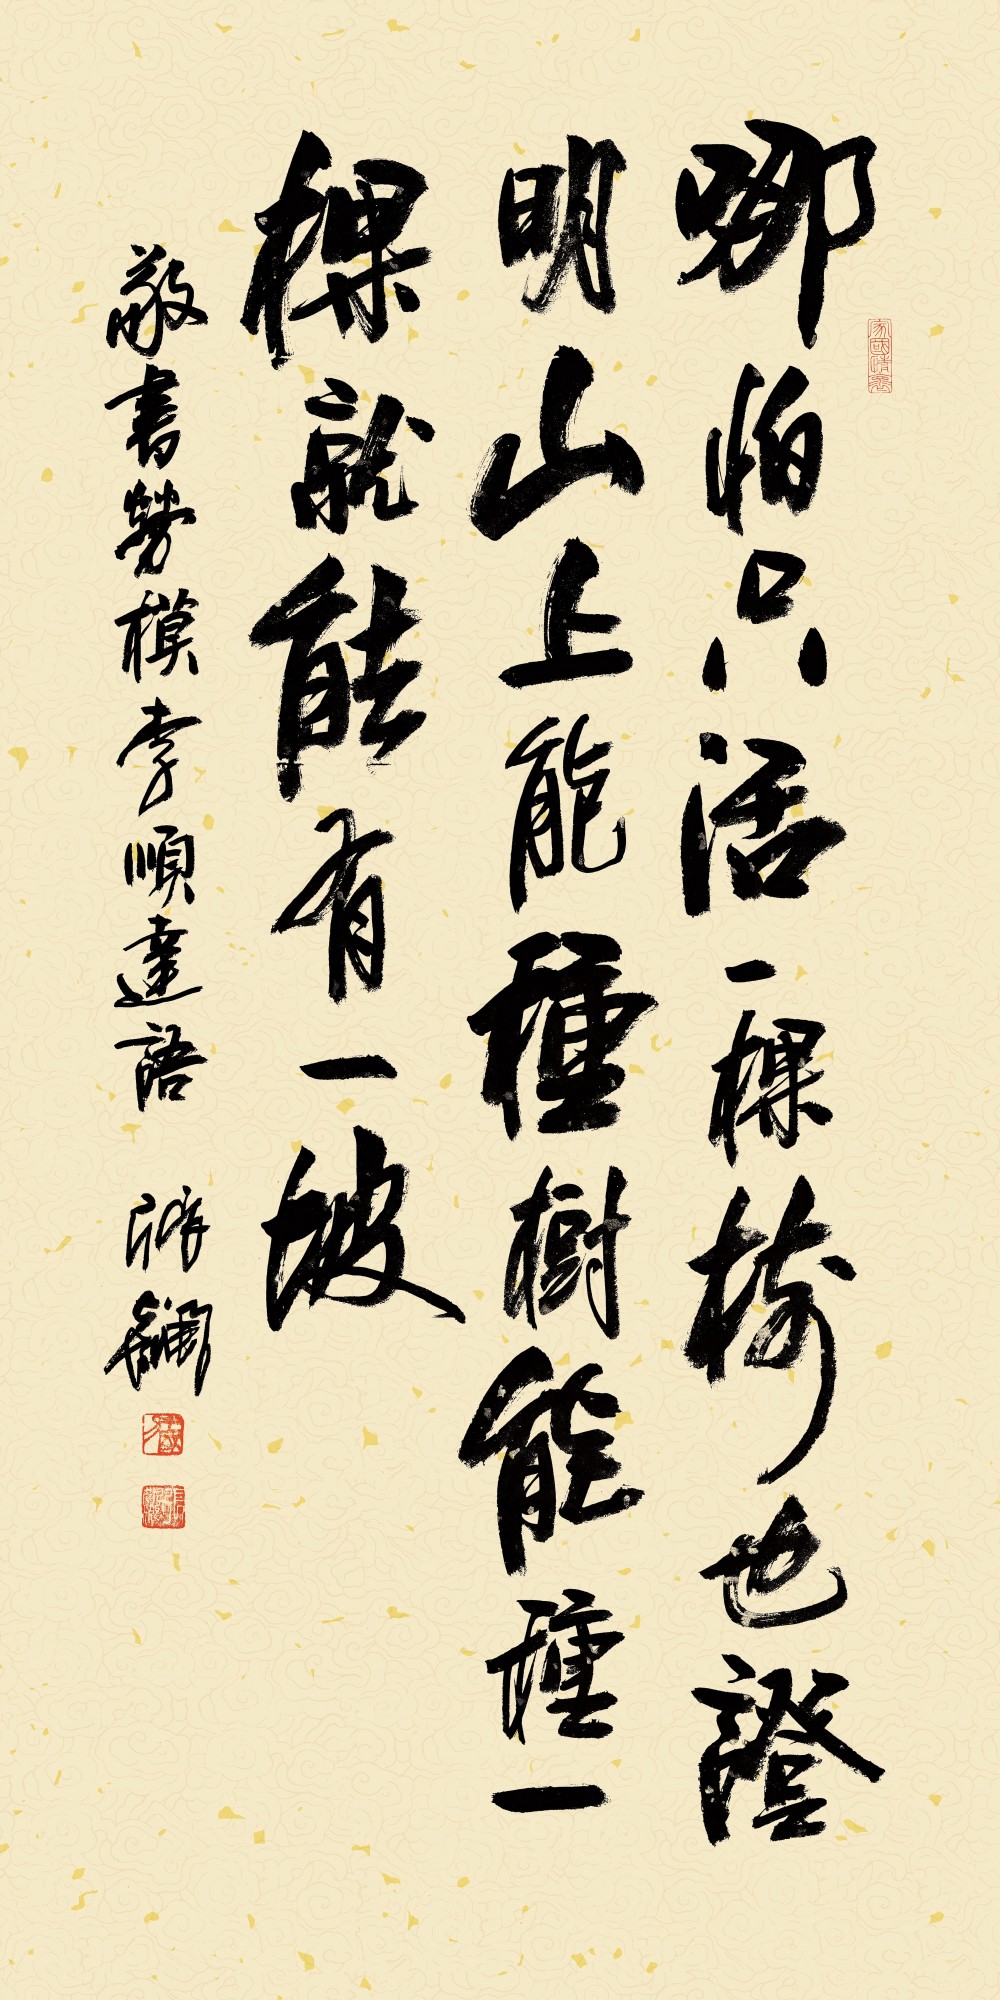 哪怕只活一棵樹也證
明山上能種樹能種一
棵就能有一坡
敬書勞模李順達語
家國情懷